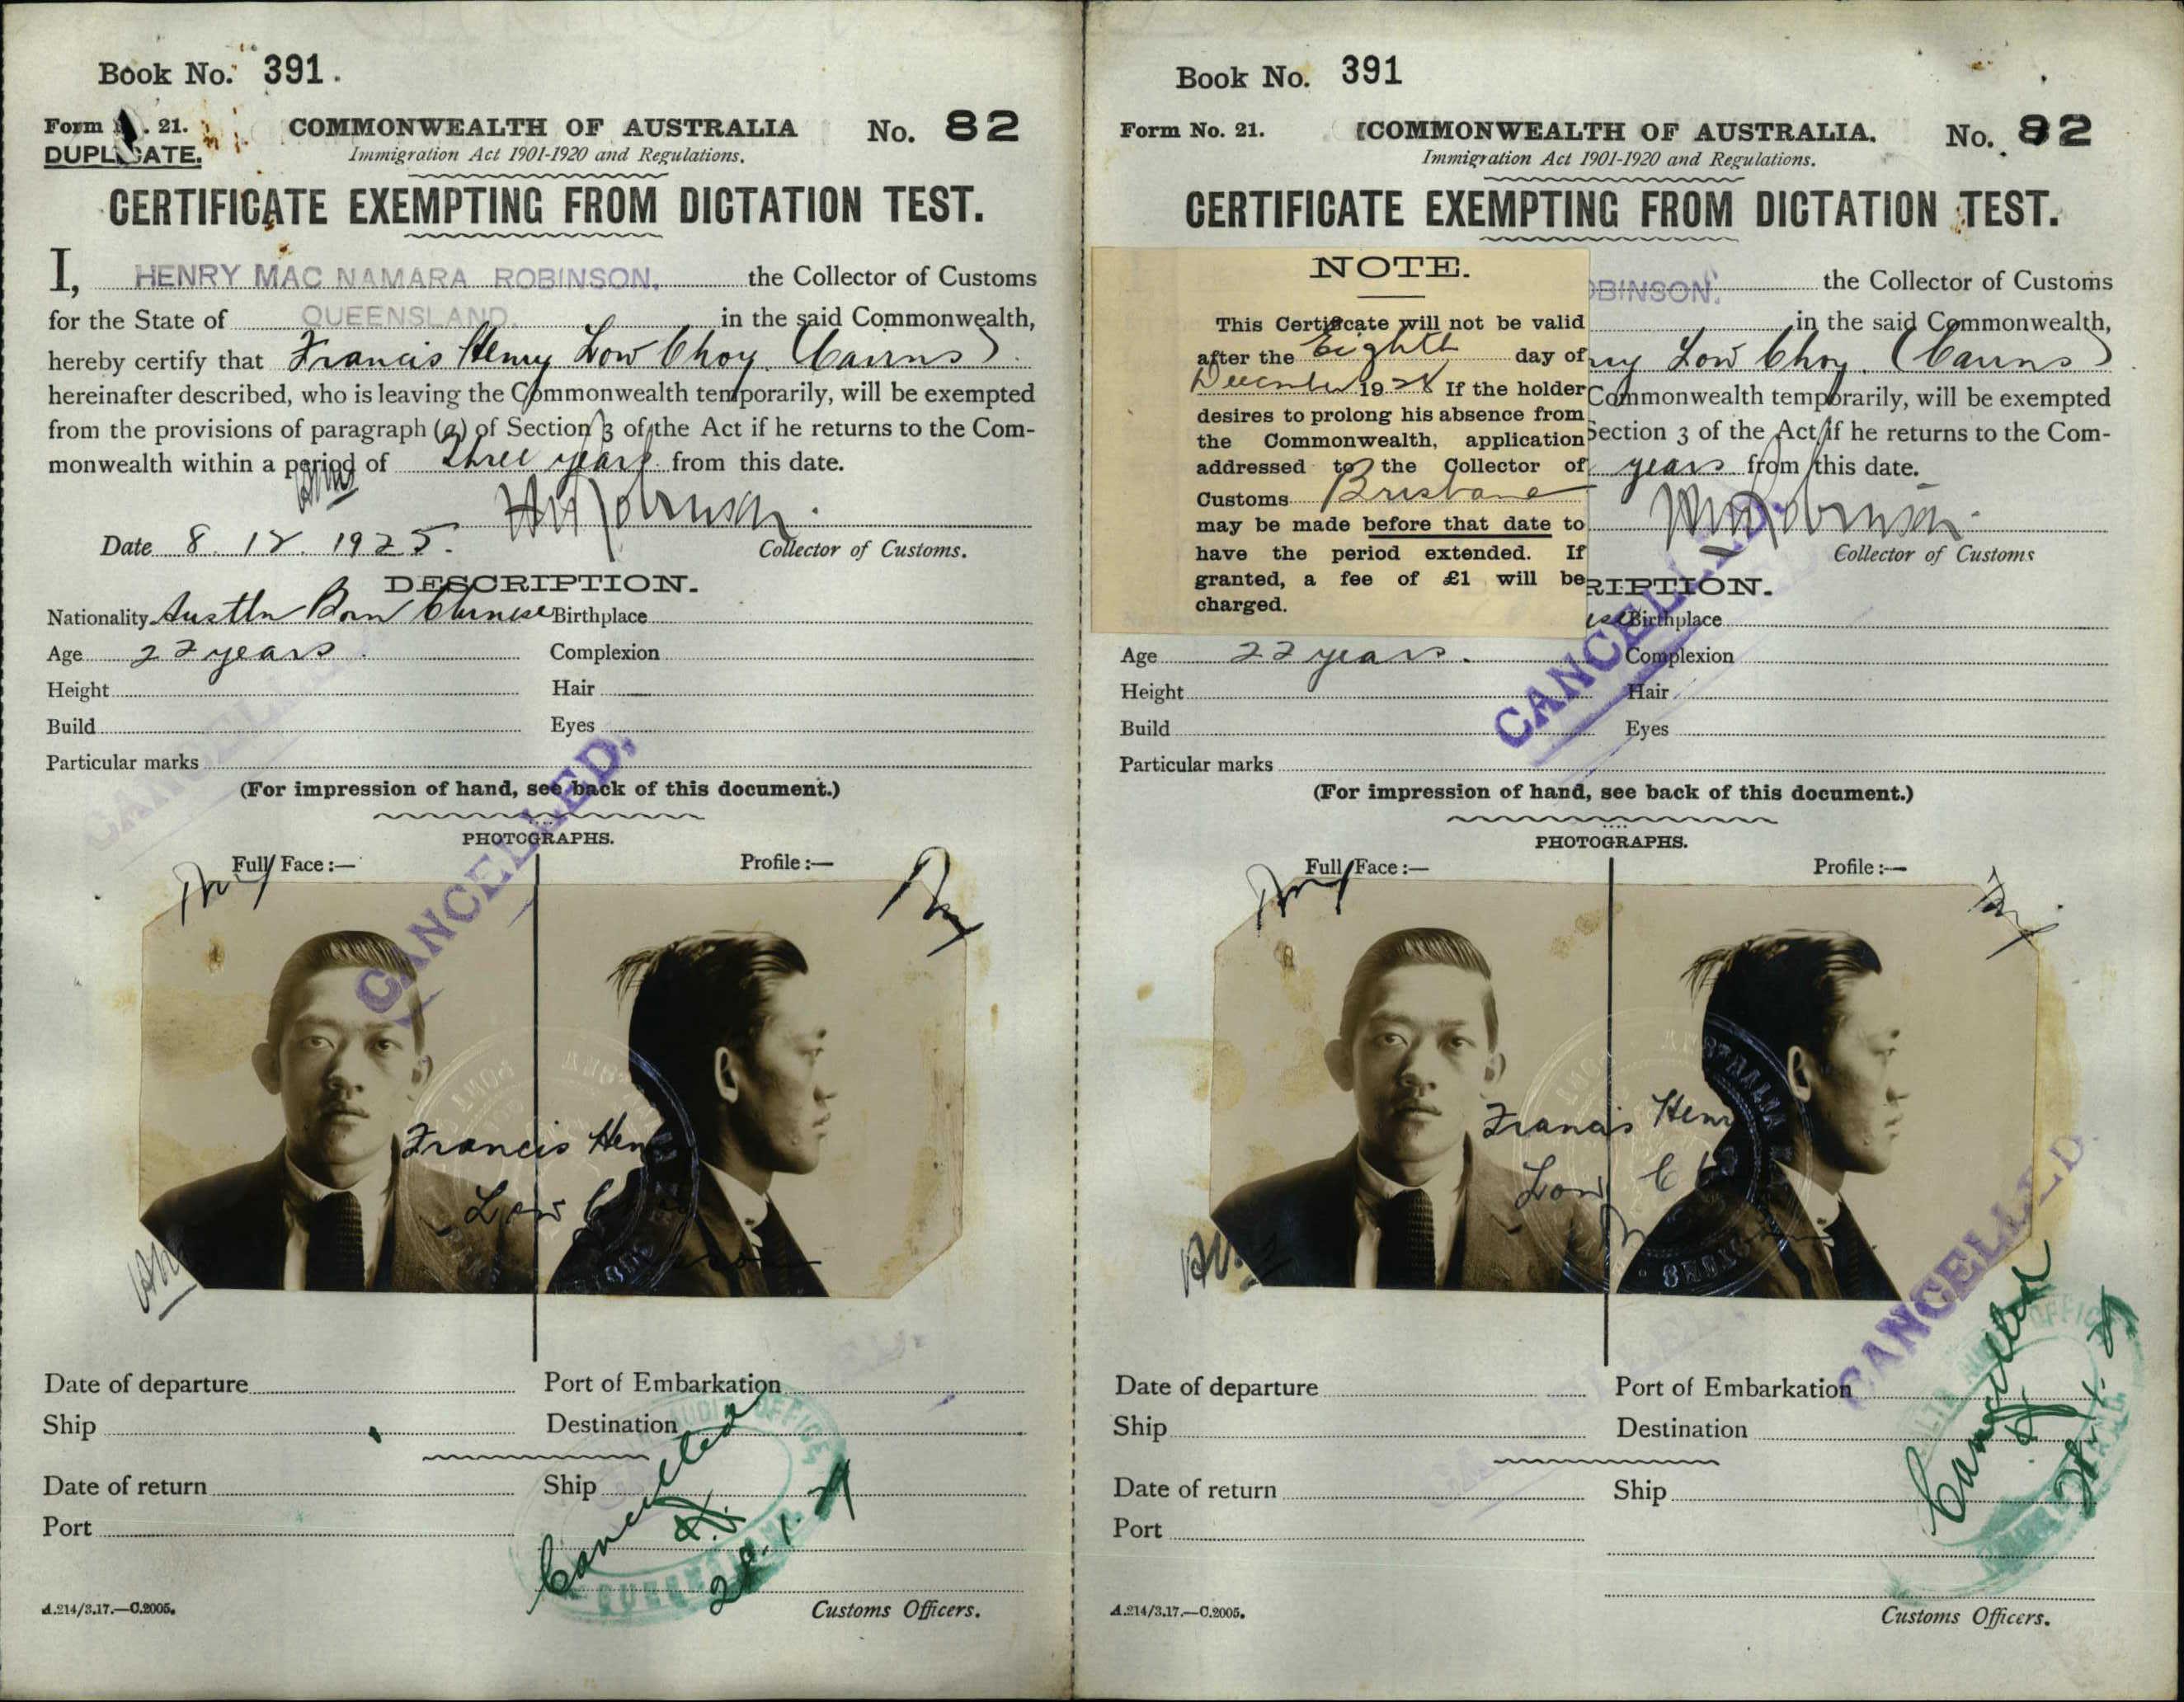 Book No. 391.
Form No. 21.
DUPLICATE.
COMMONWEALTH OF AUSTRALIA
No. 82
Immigration Act 1901-1920 and Regulations.
CERTIFICATE EXEMPTING FROM DICTATION TEST.
I, HENRY MAC NAMARA ROBINSON, the Collector of Customs
for the State of QUEENSLAND. in the said Commonwealth,
hereby certify that Francis Henry Low Choy. (Cairns)
hereinafter described, who is leaving the Commonwealth temporarily, will be exempted
from the provisions of paragraph (a) of Section 3 of the Act if he returns to the Com-
monwealth within a period of three years from this date.
Date 8.12.1925.
Collector of Customs.
DESCRIPTION.
Nationality Austln Born Chinese Birthplace
Age 22 years. Complexion
Height Hair
Build Eyes
Particular marks
(For impression of hand, see back of this document.)
PHOTOGRAPHS.
Full Face:— Profile:—
CANCELLED.
Francis Hen
Low C
Date of departure Port of Embarkation
Ship Destination
Date of return Ship
Port
Cancelled
28.1.27
Customs Officers.
A.214/3.17.—C.2005.
Book No. 391
Form No. 21.
COMMONWEALTH OF AUSTRALIA.
No. 82
Immigration Act 1901-1920 and Regulations.
CERTIFICATE EXEMPTING FROM DICTATION TEST.
NOTE.
This Certificate will not be valid
after the Eighth day of
December 1928 If the holder
desires to prolong his absence from
the Commonwealth, application
addressed to the Collector of
Customs Brisbane
may be made before that date to
have the period extended. If
granted, a fee of £1 will be
charged.
OBINSON. the Collector of Customs
in the said Commonwealth,
ry Low Choy. (Cairns)
Commonwealth temporarily, will be exempted
Section 3 of the Act if he returns to the Com-
years from this date.
Collector of Customs
RIPTION.
ese Birthplace
Age 22 years. Complexion
Height Hair
Build Eyes
Particular marks
CANCELLED.
(For impression of hand, see back of this document.)
PHOTOGRAPHS.
Full Face:— Profile:—
Francis Henr
Low C
CANCELLED
Date of departure Port of Embarkation
Ship Destination
Date of return Ship
Port
Cancelled
28.1.27
Customs Officers.
A.214/3.17.—C.2005.